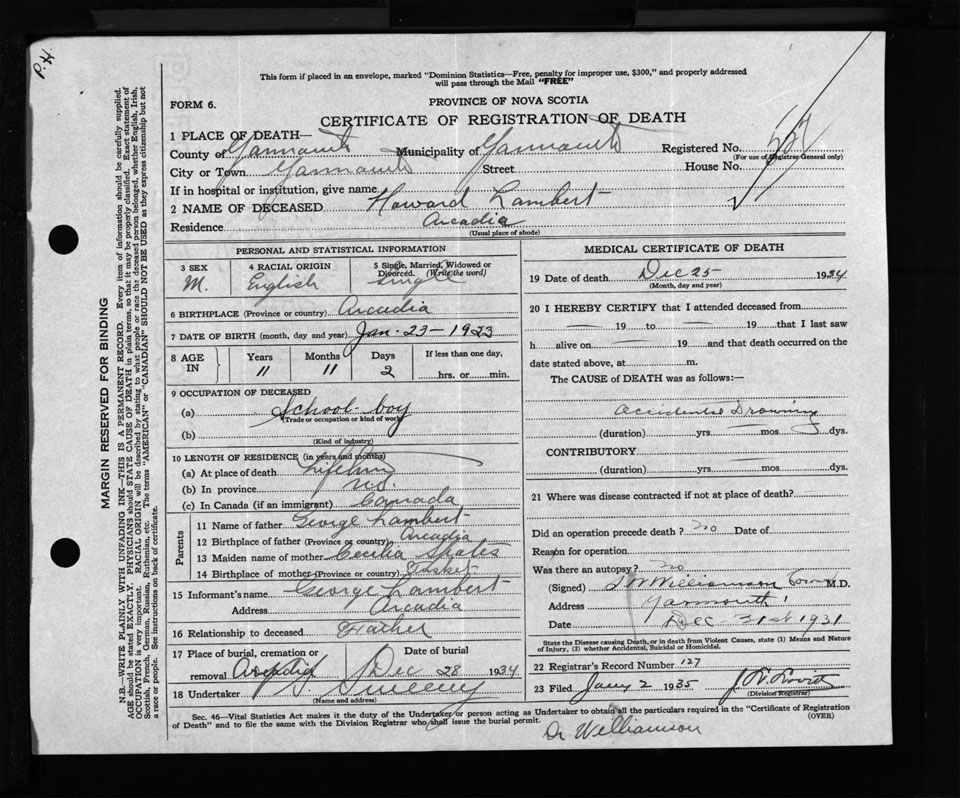 P.H.
This form if placed in an envelope, marked "Dominion Statistics—Free, penalty for improper use, $300," and properly addressed
will pass through the Mail "FREE"
FORM 6.
PROVINCE OF NOVA SCOTIA
CERTIFICATE OF REGISTRATION OF DEATH
1 PLACE OF DEATH—
County of Yarmouth Municipality of Yarmouth Registered No.
(For use of Registrar General only)
City or Town Yarmouth Street House No.
If in hospital or institution, give name
2 NAME OF DECEASED Howard Lambert
Residence Arcadia
(Usual place of abode)
PERSONAL AND STATISTICAL INFORMATION
3 SEX 4 RACIAL ORIGIN 5 Single, Married, Widowed or
Divorced. (Write the word)
M. English Single
6 BIRTHPLACE (Province or country) Arcadia
7 DATE OF BIRTH (month, day and year) Jan. 23 - 1923
8 AGE IN Years Months Days If less than one day,
11 11 2 hrs. or min.
9 OCCUPATION OF DECEASED
(a) School-boy
(Trade or occupation or kind of work)
(b)
(Kind of industry)
10 LENGTH OF RESIDENCE (in years and months)
(a) At place of death Lifetime
(b) In province N.S.
(c) In Canada (if an immigrant) Canada
Parents
11 Name of father George Lambert
12 Birthplace of father (Province or country) Arcadia
13 Maiden name of mother Cecilia
14 Birthplace of mother (Province or country) Tusket
15 Informant's name George Lambert
Address Arcadia
16 Relationship to deceased Father
17 Place of burial, cremation or Date of burial
removal Arcadia Dec 28 1934
18 Undertaker Sweeny
(Name and address)
MEDICAL CERTIFICATE OF DEATH
19 Date of death Dec 25 1934
(Month, day and year)
20 I HEREBY CERTIFY that I attended deceased from
— 19 to — 19 that I last saw
h alive on — 19 and that death occurred on the
date stated above, at m.
The CAUSE of DEATH was as follows:—
Accidental Drowning
(duration) yrs. — mos. dys.
CONTRIBUTORY
(duration) yrs. — mos. dys.
21 Where was disease contracted if not at place of death?
Did an operation precede death? no Date of
Reason for operation
Was there an autopsy? no
(Signed) Williamson M.D.
Address Yarmouth
Date Dec 31st 1931
State the Disease causing Death, or in death from Violent Causes, state (1) Means and Nature
of Injury, (2) whether Accidental, Suicidal or Homicidal.
22 Registrar's Record Number 127
23 Filed Jany 2 1935
(Division Registrar)
Sec. 46—Vital Statistics Act makes it the duty of the Undertaker or person acting as Undertaker to obtain all the particulars required in the "Certificate of Registration
of Death" and to file the same with the Division Registrar who shall issue the burial permit. (OVER)
Dr Williamson
MARGIN RESERVED FOR BINDING
N.B.—WRITE PLAINLY WITH UNFADING INK—THIS IS A PERMANENT RECORD. Every item of information should be carefully supplied.
AGE should be stated EXACTLY. PHYSICIANS should STATE CAUSE OF DEATH in plain terms, so that it may be properly classified. Exact statement of
OCCUPATION is very important. RACIAL ORIGIN will be described by stating to what people or race the deceased person belonged, whether English, Irish,
Scottish, French, German, Russian, Ruthenian, etc. The terms "AMERICAN" or "CANADIAN" SHOULD NOT BE USED as they express citizenship but not
a race or people. See instructions on back of certificate.